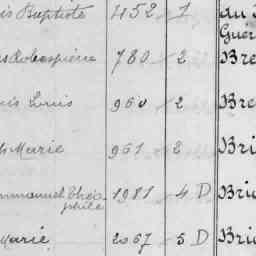 is Baptiste 452 1 du
Guér
Robespierre 780 2 Bre
is Louis 960 2 Bre
Marie 961 2 Bri
mmanuel Théo 1981 4 D Bri
phile
Marie 2067 5 D Bri